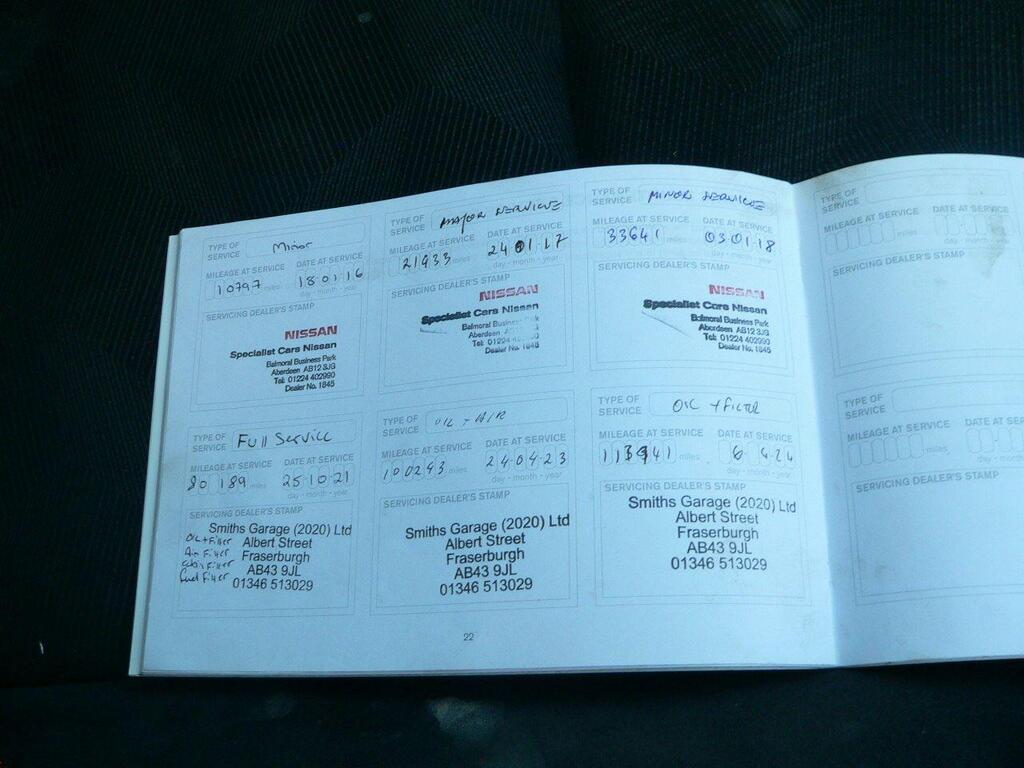 TYPE OF SERVICE Minor
MILEAGE AT SERVICE DATE AT SERVICE
10797 miles 18 01 16
day - month - year
SERVICING DEALER'S STAMP
NISSAN
Specialist Cars Nissan
Balmoral Business Park
Aberdeen AB12 3JG
Tel: 01224 402990
Dealer No. 1845
TYPE OF SERVICE MAJOR SERVICE
MILEAGE AT SERVICE DATE AT SERVICE
21933 miles 24 01 17
day - month - year
SERVICING DEALER'S STAMP
NISSAN
Specialist Cars Nissan
Balmoral Business
Aberdeen
Tel: 01224
Dealer No. 1845
TYPE OF SERVICE MINOR SERVICE
MILEAGE AT SERVICE DATE AT SERVICE
33641 miles 03 01 18
day - month - year
SERVICING DEALER'S STAMP
NISSAN
Specialist Cars Nissan
Balmoral Business Park
Aberdeen AB12 3JG
Tel: 01224 402990
Dealer No. 1845
TYPE OF SERVICE Full Service
MILEAGE AT SERVICE DATE AT SERVICE
80 189 miles 25-10-21
day - month - year
SERVICING DEALER'S STAMP
Smiths Garage (2020) Ltd
Albert Street
Fraserburgh
AB43 9JL
01346 513029
Oil + Filter
Air Filter
Cabin Filter
Fuel Filter
TYPE OF SERVICE OIL + AIR
MILEAGE AT SERVICE DATE AT SERVICE
100243 miles 24-04-23
day - month - year
SERVICING DEALER'S STAMP
Smiths Garage (2020) Ltd
Albert Street
Fraserburgh
AB43 9JL
01346 513029
TYPE OF SERVICE OIL + FILTER
MILEAGE AT SERVICE DATE AT SERVICE
miles 6 4.24
day - month - year
SERVICING DEALER'S STAMP
Smiths Garage (2020) Ltd
Albert Street
Fraserburgh
AB43 9JL
01346 513029
22
TYPE OF SERVICE
MILEAGE AT SERVICE DATE AT SERVICE
miles day - month
SERVICING DEALER'S STAMP
TYPE OF SERVICE
MILEAGE AT SERVICE DATE AT
miles day - mon
SERVICING DEALER'S STAMP